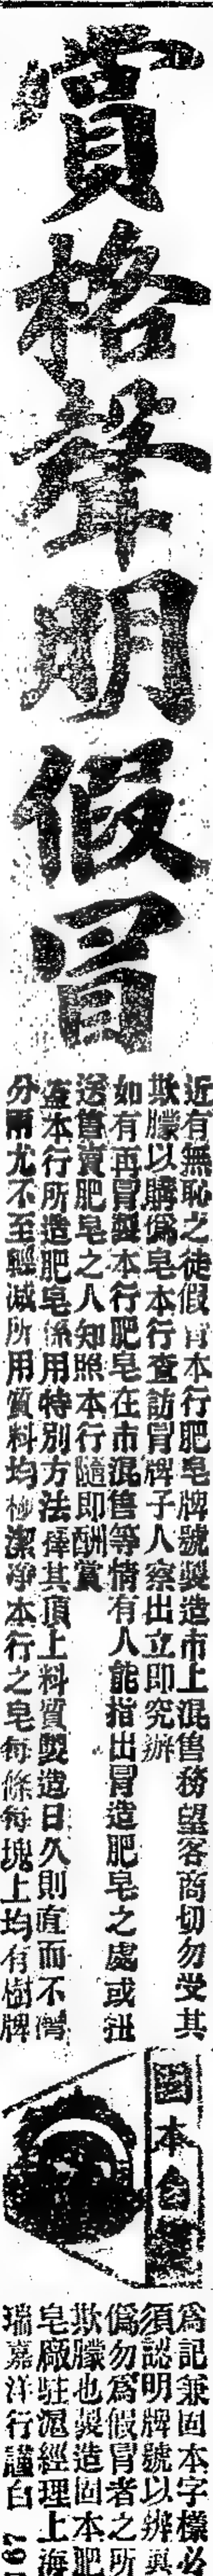 賞格聲明假冒
近有無恥之徒假冒本行肥皂牌號製造市上混售務望客商切勿受其
欺朦以購僞皂本行查訪冒牌子人察出立即究辦
如有再冒製本行肥皂在市混售等情有人能指出冒造肥皂之處或扭
送售賣肥皂之人知照本行隨即酬賞
本行所造肥皂係用特別方法擇其頂上料質製造日久則直而不灣
分兩尤不至輕減所用質料均極潔淨本行之皂每條每塊上均有樹牌
固本
爲記兼固本字樣必
須認明牌號以辨眞
僞勿爲假冒者之所
欺朦也製造固本肥
皂廠駐滬經理上海
瑞嘉洋行謹白
167